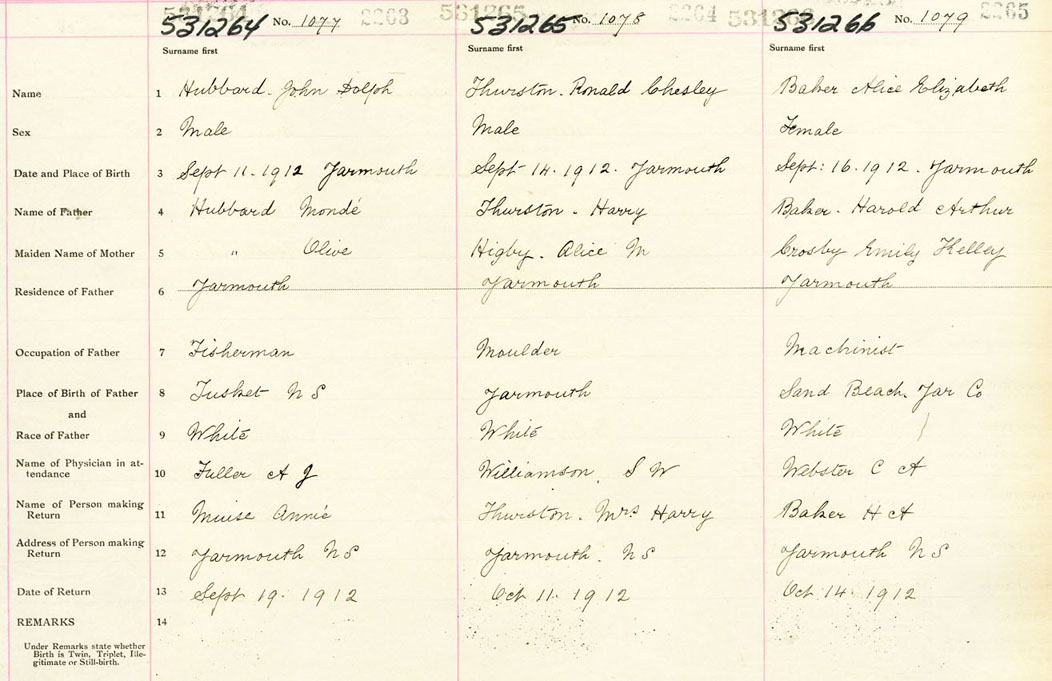 531264 No. 1077 2263 531265 No. 1078 2264 531266 No. 1079 2265
Surname first Surname first Surname first
Name 1 Hubbard. John Dolph Thurston. Ronald Chesley Baker Alice Elizabeth
Sex 2 Male Male Female
Date and Place of Birth 3 Sept 11. 1912 Yarmouth Sept 14. 1912. Yarmouth Sept: 16. 1912. Yarmouth
Name of Father 4 Hubbard Mondé Thurston - Harry Baker. Harold Arthur
Maiden Name of Mother 5 " Olive Higby. Alice M Crosby Emily Kelley
Residence of Father 6 Yarmouth Yarmouth Yarmouth
Occupation of Father 7 Fisherman Moulder Machinist
Place of Birth of Father 8 Tusket N S Yarmouth Sand Beach. Yar Co
and
Race of Father 9 White White White
Name of Physician in at-
tendance 10 Fuller A J Williamson. S W Webster C A
Name of Person making
Return 11 Muise Annie Thurston. Mrs Harry Baker H A
Address of Person making
Return 12 Yarmouth NS Yarmouth. NS Yarmouth NS
Date of Return 13 Sept 19. 1912 Oct 11. 1912 Oct 14. 1912
REMARKS 14
Under Remarks state whether
Birth is Twin, Triplet, Ille-
gitimate or Still-birth.